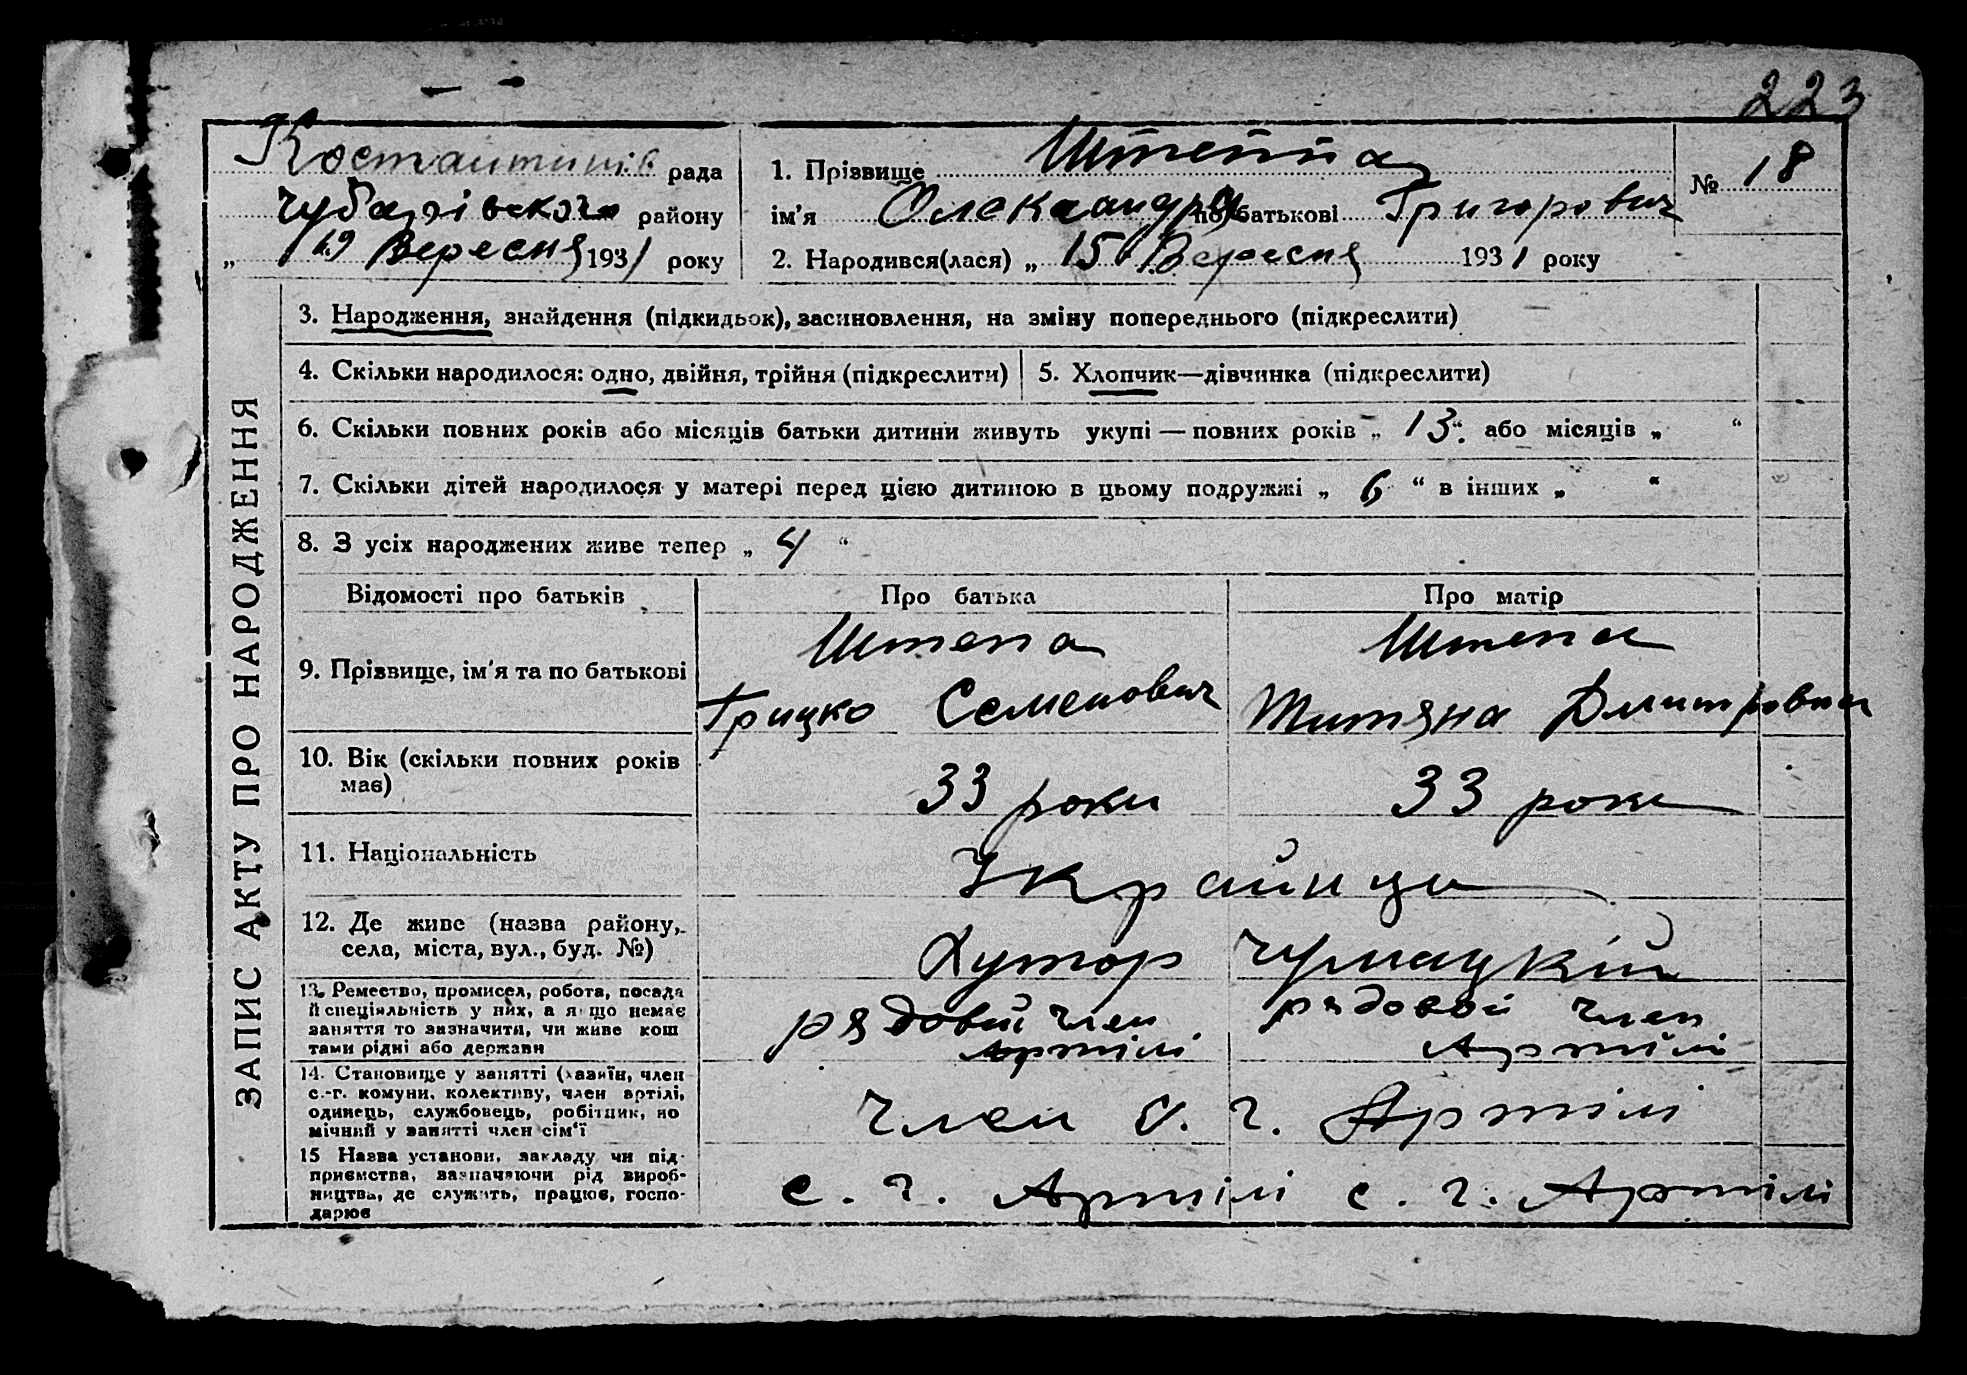 223
Костантинів рада
Чубарівського району
„ 19 Вересня 1931 року
1. Прізвище Штепа № 18
ім'я Олександр по батькові Григорович
2. Народився(лася) „ 15 " Вересня 1931 року
ЗАПИС АКТУ ПРО НАРОДЖЕННЯ
3. Народження, знайдення (підкидьок), засиновлення, на зміну попереднього (підкреслити)
4. Скільки народилося: одно, двійня, трійня (підкреслити) 5. Хлопчик—дівчинка (підкреслити)
6. Скільки повних років або місяців батьки дитини живуть укупі — повних років „ 13 “. або місяців „ “
7. Скільки дітей народилося у матері перед цією дитиною в цьому подружжі „ 6 “ в інших „ “
8. З усіх народжених живе тепер „ 4 “
Відомості про батьків Про батька Про матір
9. Прізвище, ім'я та по батькові
Штепа
Грицко Семенович
Штепа
Титяна Дмитровна
10. Вік (скільки повних років
має)
33 роки 33 роки
11. Національність Украйнци
12. Де живе (назва району,
села, міста, вул., буд. №)
Хутор Чумацкій
13. Ремество, промисел, робота, посада
й спеціяльність у них, а якщо немає
заняття то зазначити, чи живе кош
тами рідні або держави
рядовий член
Артілі
рядовой член
Артілі
14. Становище у занятті (хазяїн, член
с.-г. комуни, колективу, член артілі,
одинець, службовець, робітник, по
мічний у занятті член сім'ї
член с. г. Артілі
15 Назва установи, закладу чи під-
приємства, зазначаючи рід вироб-
ництва, де служить, працює, госпо-
дарює
с. г. Артілі с. г. Артілі